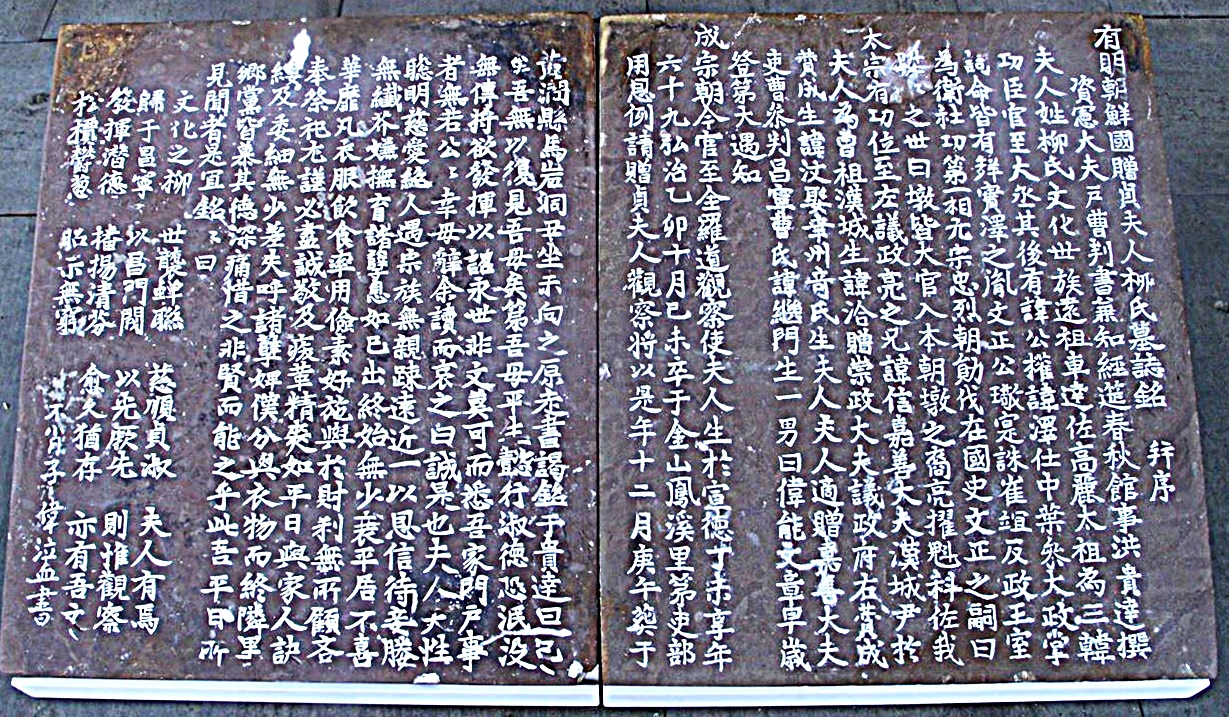 有明朝鮮國贈貞夫人柳氏墓誌銘 并序
資憲大夫戶曹判書兼知經筵春秋館事洪貴達撰
夫人姓柳氏文化世族遠祖車達佐高麗太祖為三韓
功臣官至大丞其後有諱公權諱澤仕中葉參大政掌
誥命皆有鋅實澤之胤文正公璥寔誅崔竩反政王室
為衛社功第一相元宗忠烈朝勛伐在國史文正之嗣曰
之世曰墩皆大官入本朝墩之裔亮擢魁科佐我
太宗有功位至左議政亮之兄諱信嘉善大夫漢城尹於
夫人為曹祖漢城生諱洽贈崇政大夫議政府右贊成
贊成生諱汶娶幸州奇氏生夫人夫人適贈嘉善大夫
吏曹參判昌寧曹氏諱繼門生一男曰偉能文章早歲
登第大遇知
成宗朝今官至全羅道觀察使夫人生於宣德丁未享年
六十九弘治乙卯十月己未卒于金山鳳溪里第吏部
用恩例請贈貞夫人觀察將以是年十二月庚午葬于
黃澗縣馬岩洞丑坐未向之原奉書謁銘于貴達曰已
矣吾無以復見吾母矣第吾母平生懿行淑德恐泯沒
無傳將欲發揮以詔永世非文莫可而悉吾家門戶事
者無若公〻幸毋辭余讀而哀之曰誠是也夫人天性
聰明慈愛絶人遇宗族無親疎遠近一以恩信待妾媵
無纖芥嫌撫育諸孽息如己出終始無少衰平居不喜
華靡凡衣服飲食率用儉素好施與於財利無所顧吝
奉祭祀尤謹必盡誠敬及疾革精爽如平日與家人訣
縷及委細無少差失呼諸孽婢僕分與衣物而終隣里
鄉黨皆慕其德深痛惜之非賢而能之乎此吾平日所
見聞者是宜銘〻曰
文化之柳 世襲蟬聯 慈順貞淑 夫人有焉
歸于昌寧 以昌門閥 以光厥先 則惟觀察
發揮潛德 播揚清芬 愈久猶存 亦有吾文〻
松檟鬱葱 昭示無窮
不肖子偉泣血書